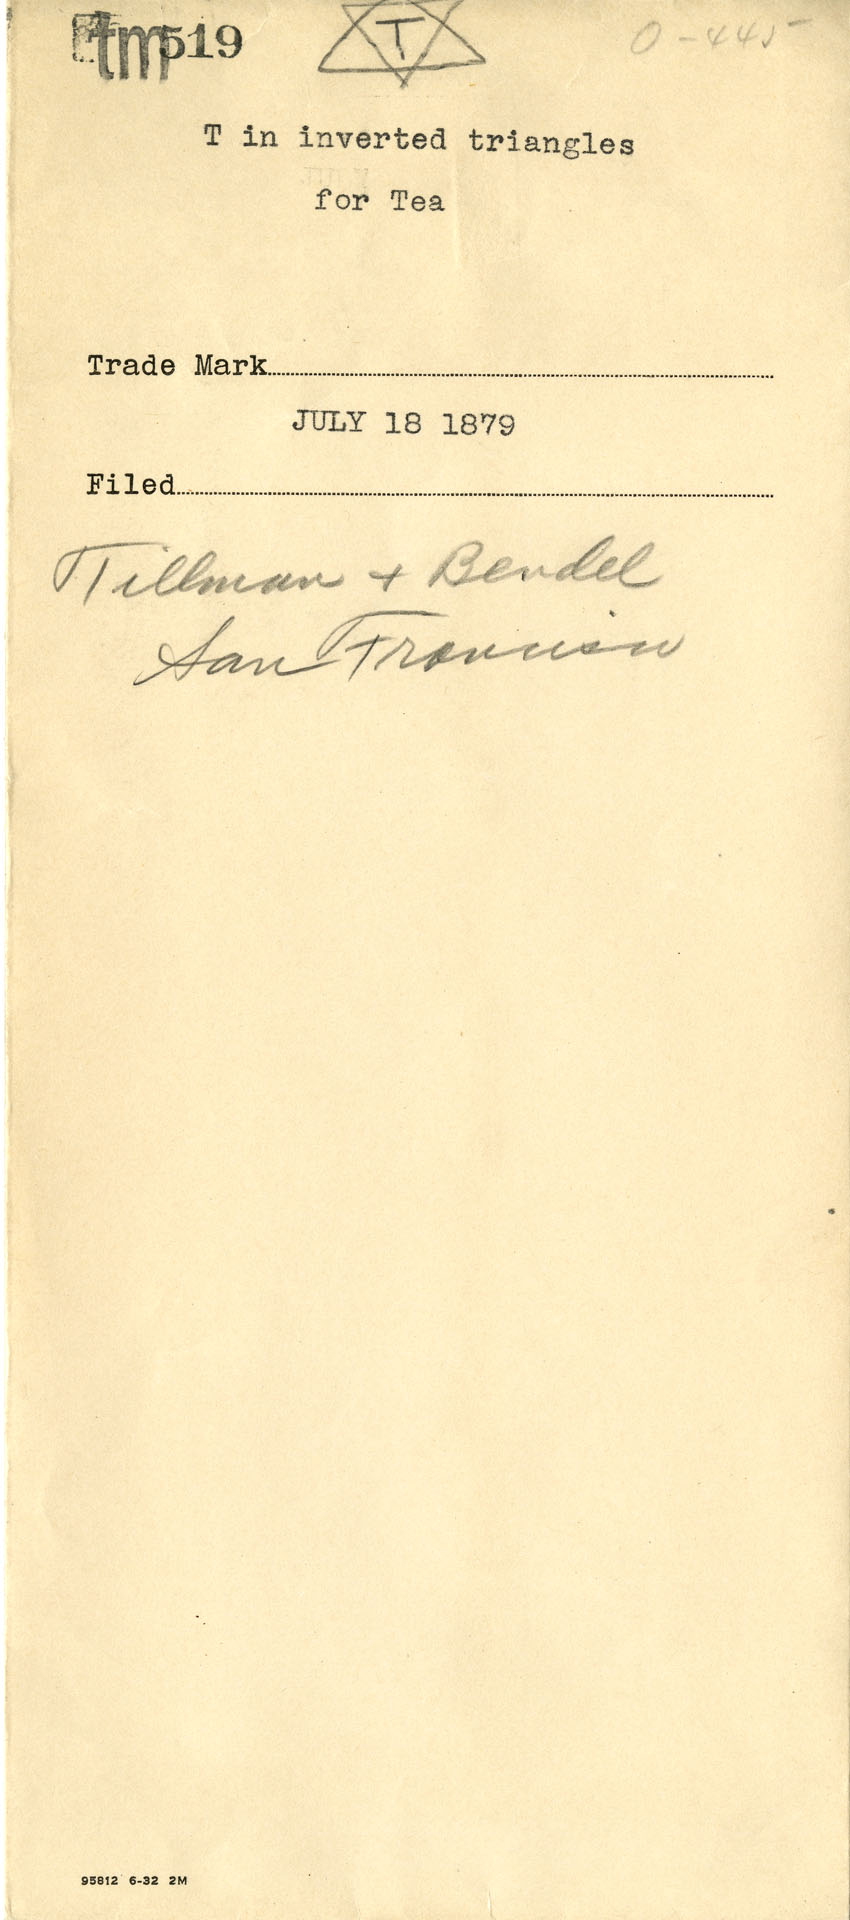 tm519
T
0-445
T in inverted triangles
for Tea
Trade Mark
JULY 18 1879
Filed
Tillman + Bendel
San Francisco
95812 6-32 2M